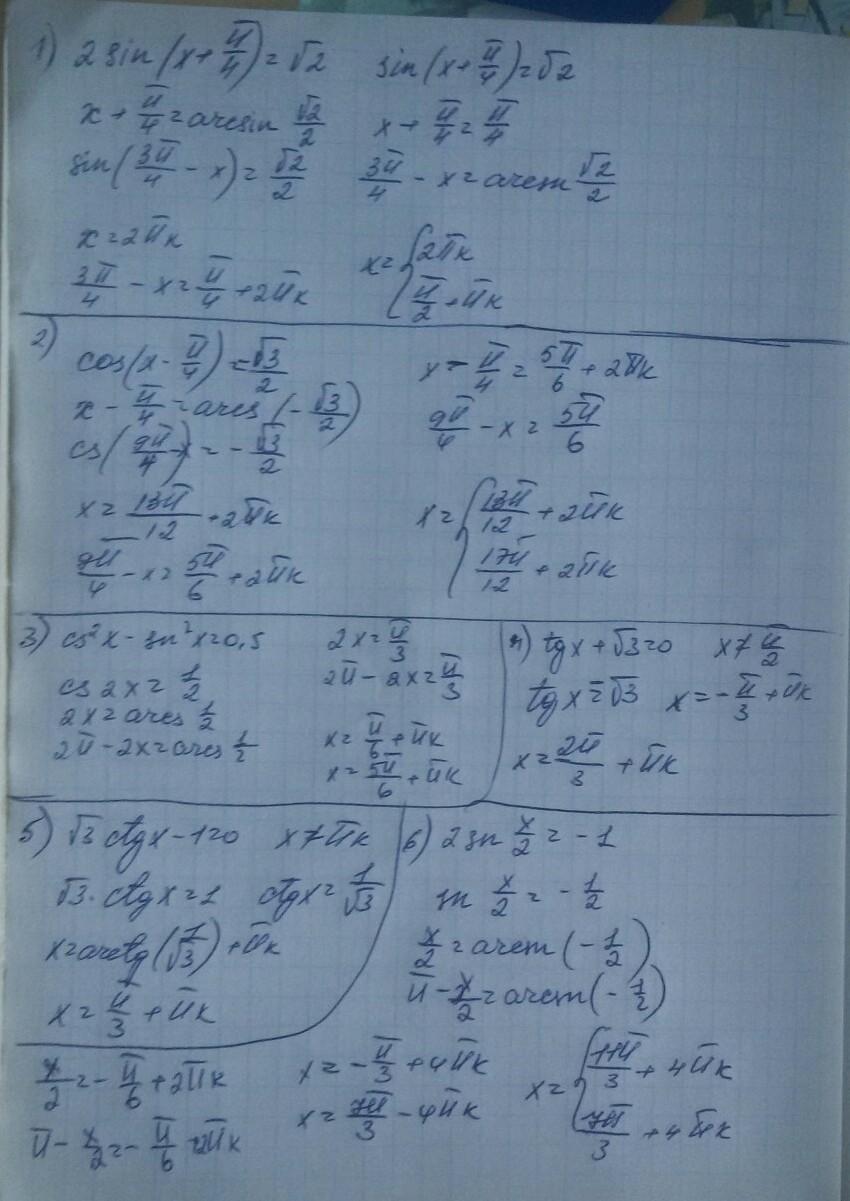 1) 2 sin(x+π/4)=√2 sin(x+π/4)=√2
x+π/4=arcsin √2/2 x+π/4=π/4
sin(3π/4-x)=√2/2 3π/4-x=arcsin √2/2
x=2πk
3π/4-x=π/4+2πk x={2πk
π/2+πk
2) cos(x-π/4)=-√3/2 x-π/4=5π/6+2πk
x-π/4=arcs(-√3/2)
cs(9π/4-x)=-√3/2 9π/4-x=5π/6
x=13π/12+2πk x={13π/12+2πk
9π/4-x=5π/6+2πk 17π/12+2πk
3) cs²x-sn²x=0,5 2x=π/3
cs2x=1/2 2π-2x=π/3
2x=arcs 1/2
2π-2x=arcs 1/2 x=π/6+πk
x=5π/6+πk
4) tgx+√3=0 x≠π/2
tgx=-√3 x=-π/3+πk
x=2π/3+πk
5) √3 ctgx-1=0 x≠πk
√3·ctgx=1 ctgx=1/√3
x=arcctg(1/√3)+πk
x=π/3+πk
6) 2sn x/2=-1
sn x/2=-1/2
x/2=arcsn(-1/2)
π-x/2=arcsn(-1/2)
x/2=-π/6+2πk x=-π/3+4πk x={11π/3+4πk
π-x/2=-π/6+2πk x=7π/3-4πk 7π/3+4πk